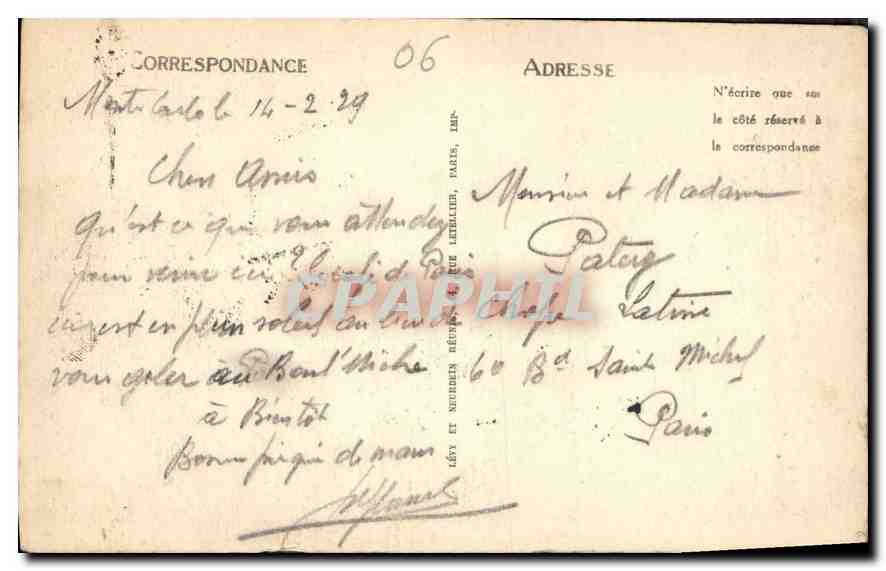 CORRESPONDANCE
06
ADRESSE
N'écrire que sur
le côté réservé à
la correspondance
Monte Carlo le 14-2-29
Chers Amis
qu'est ce que vous attendez
pour venir ici de Paris
en plein soleil au lieu de
vous geler au Boul'Miche
à Bientôt
Bonne de mains
LÉVY ET NEURDEIN RÉUNIS, RUE LETELLIER, PARIS, IMP.
Monsieur et Madame
Latine
60 Bd Saint Michel
Paris
CPAPHIL